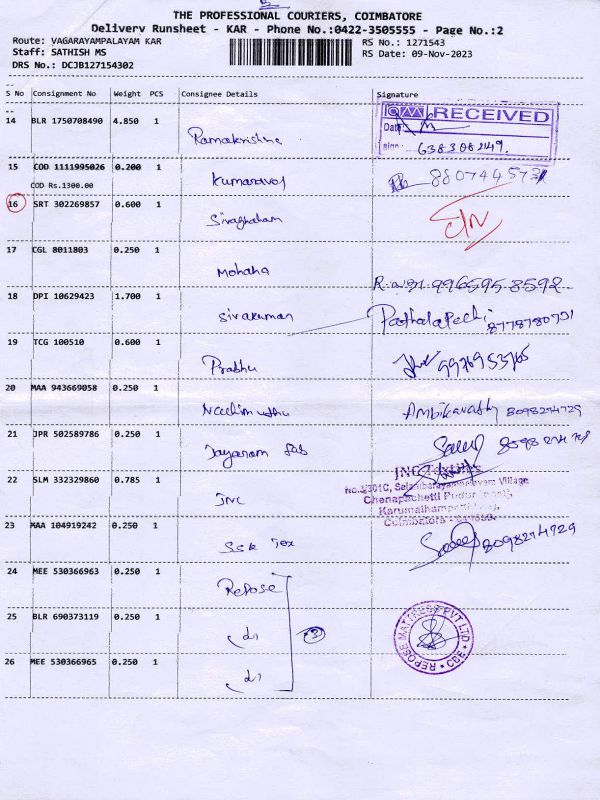 THE PROFESSIONAL COURIERS, COIMBATORE
Delivery Runsheet - KAR - Phone No.:0422-3505555 - Page No.:2
Route: VAGARAYAMPALAYAM KAR
RS No.: 1271543
Staff: SATHISH MS
RS Date: 09-Nov-2023
DRS No.: DCJB127154302
S No Consignment No Weight PCS Consignee Details Signature
14 BLR 1750708490 4.850 1 Ramakrishna
RECEIVED
Date
Sign: 6383082149.
15 COD 1111995026 0.200 1 Kumaravel
COD Rs.1300.00
16 SRT 302269857 0.600 1
17 CGL 8011803 0.250 1 Mohana
996595 8592
18 DPI 10629423 1.700 1 Sivakumar 8778780731
19 TCG 100510 0.600 1 Prabhu 9976953765
20 MAA 943669058 0.250 1 8098274729
21 JPR 502589786 0.250 1 Jayaram
22 SLM 332329860 0.785 1 JNC
Village
23 MAA 104919242 0.250 1 SSK Tex 8098274729
24 MEE 530366963 0.250 1 Repose
25 BLR 690373119 0.250 1 do (3)
REPOSE MATTRESS PVT LTD
CBE
26 MEE 530366965 0.250 1 do